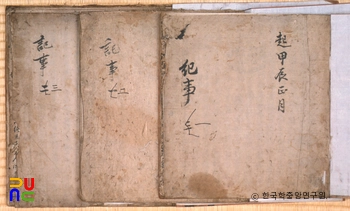 起甲辰正月
紀事
記事
記事 三
© 한국학중앙연구원